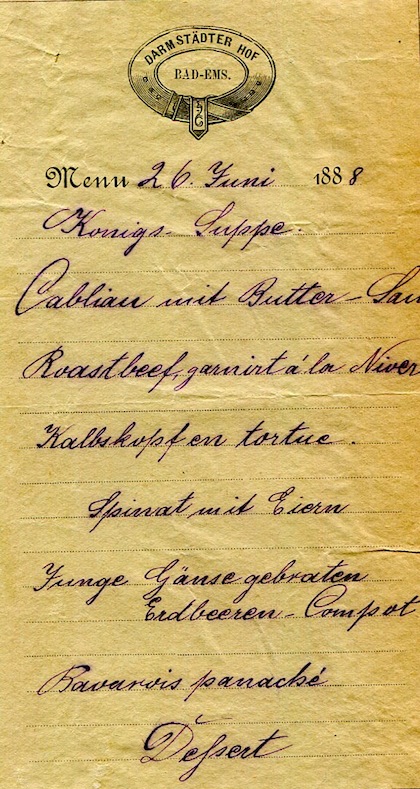 DARMSTÄDTER HOF
BAD-EMS.
Menu 26. Juni 1888
Königs-Suppe.
Cabliau mit Butter-Sau
Roastbeef, garnirt á la Niver
Kalbskopf en tortue.
Spinat mit Eiern
Junge Gänse gebraten
Erdbeeren-Compot
Bavarois panaché
Deſsert